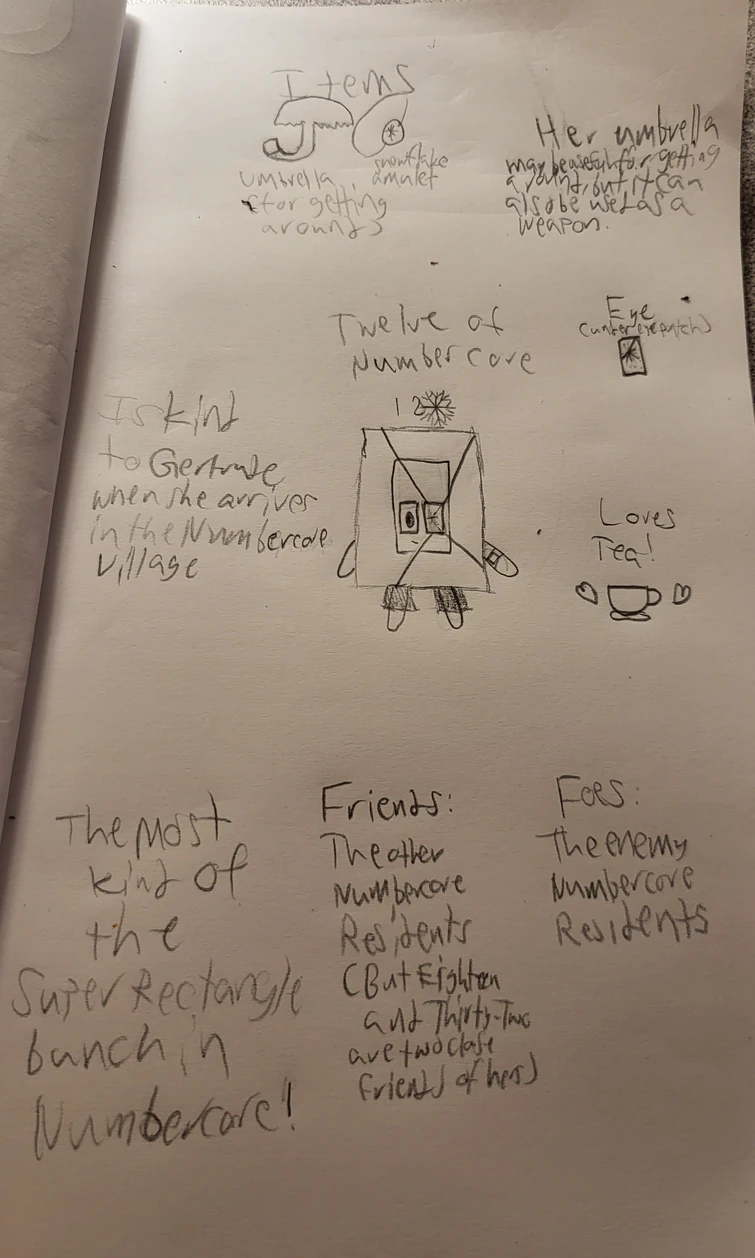 Items
umbrella,
(for getting
around)
snowflake
amulet
Her umbrella
may be useful for getting
around, but it can
also be used as a
weapon.
Twelve of
Numbercore
Eye
(under eyepatch)
12
Is kind
to Gertrude
when she arrives
in the Numbercore
village
Loves
Tea!
The most
kind of
the
Super Rectangle
bunch in
Numbercore!
Friends:
The other
Numbercore
Residents
(But Eighteen
and Thirty-Two
are two close
friends of hers)
Foes:
The enemy
Numbercore
Residents